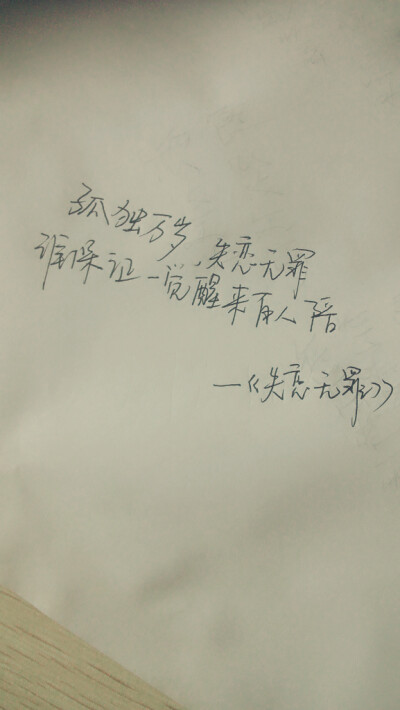 孤独万岁,失恋无罪
谁保证一觉醒来有人陪
—《失恋无罪》